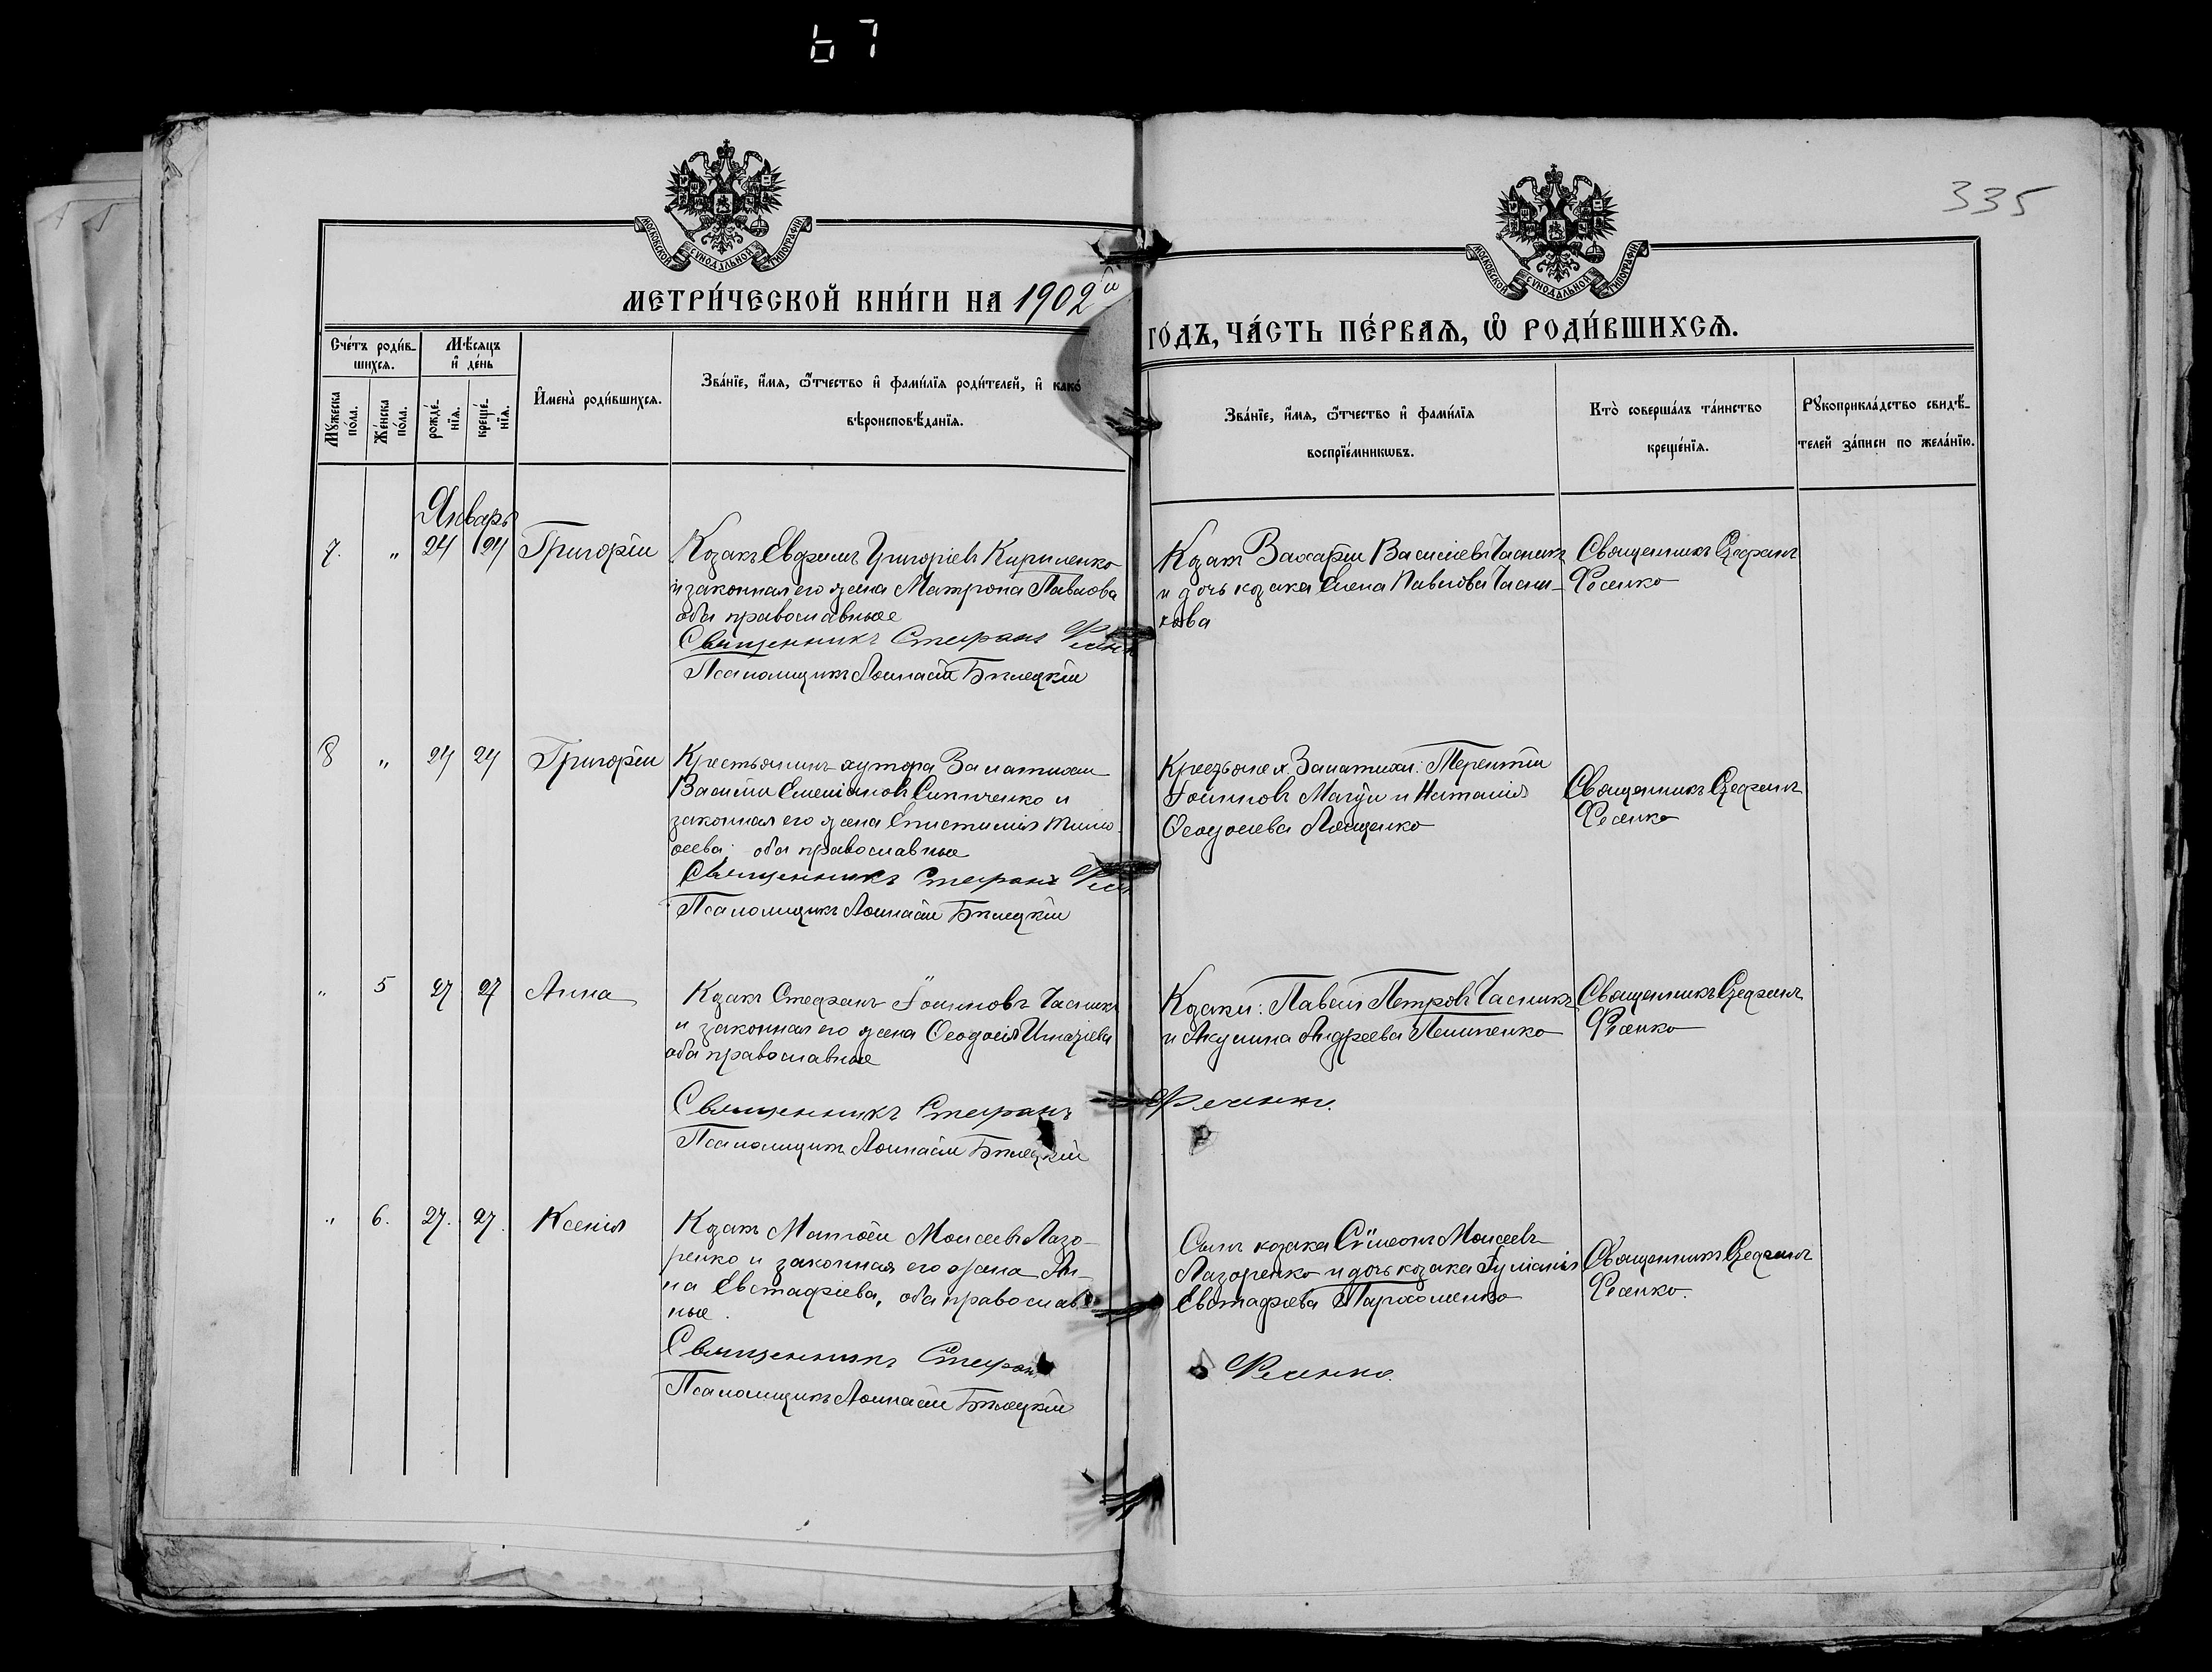 67
335
МОСКОВСКОЙ СУНОДАЛЬНОЙ ТИПОГРАФІИ
МОСКОВСКОЙ СУНОДАЛЬНОЙ ТИПОГРАФІИ
МЕТРИ́ЧЕСКОЙ КНИ́ГИ НА 1902й
ГО́ДЪ, ЧА́СТЬ ПЕ́РВАѦ, Ѿ РОДИ́ВШИХСѦ.
Сче́тъ роди́в-
шихсѧ.
Мꙋ́жеска
по́ла.
Же́нска
по́ла.
Мѣ́сѧцъ
и҆ де́нь
рожде́-
нїѧ.
креще́-
нїѧ.
И҆мена̀ роди́вшихсѧ.
Зва́нїе, и҆́мѧ, ѻ҆́тчество и҆ фами́лїѧ роди́телей, и҆ како́
вѣроисповѣ́данїѧ.
Зва́нїе, и҆́мѧ, ѻ҆́тчество и҆ фами́лїѧ
воспрїе́мникѡвъ.
Кто̀ соверша́лъ та́инство
креще́нїѧ.
Рꙋкоприкла́дство свидѣ́-
телей за́писи по жела́нїю.
Январь
7. " 24 24 Григорій
Козакъ Евфимъ Григоріевъ Кириленко
и законная его жена Матрона Павлова
оба православные
Священникъ Стефанъ Фесенк
Псаломщикъ Аѳанасій Бѣлецкій
Козакъ Захарій Васильевъ Часникъ
и дочь козака Елена Павлова Часни-
кова
Священникъ Стефанъ
Фесенко
8 " 24 24 Григорій
Крестьянинъ хутора Залатихи
Василій Симпченко и
законная его жена Тимо-
ѳеева оба православные
Священникъ Стефанъ Фес
Псаломщикъ Аѳанасій Бѣлецкій
Крестьяне х. Залатихи: Терентій
Іоанновъ и Наталія
Ѳеодосіева Лященко
Священникъ Стефанъ
Фесенко
" 5 27 27 Анна
Козакъ Стефанъ Іоанновъ Часникъ
и законная его жена Ѳеодосія Игнатіева
оба православные
Священникъ Стефанъ
Псаломщикъ Аѳанасій Бѣлецкій
Козаки: Павелъ Петровъ Часникъ
и Акулина Андреева
Фесенко.
Священникъ Стефанъ
Фесенко
" 6. 27. 27. Ксенія
Козакъ Матѳей Моисеевъ Лазо-
ренко и законная его жена Ан-
на Евстафіева, оба православ
ные.
Священникъ Стефан
Псаломщикъ Аѳанасій Бѣлецкій
Сынъ козака Сѵмеонъ Моисеевъ
Лазоренко и дочь козака Іуліанія
Евстафіева Пархоменко
Фесенко.
Священникъ Стефанъ
Фесенко.